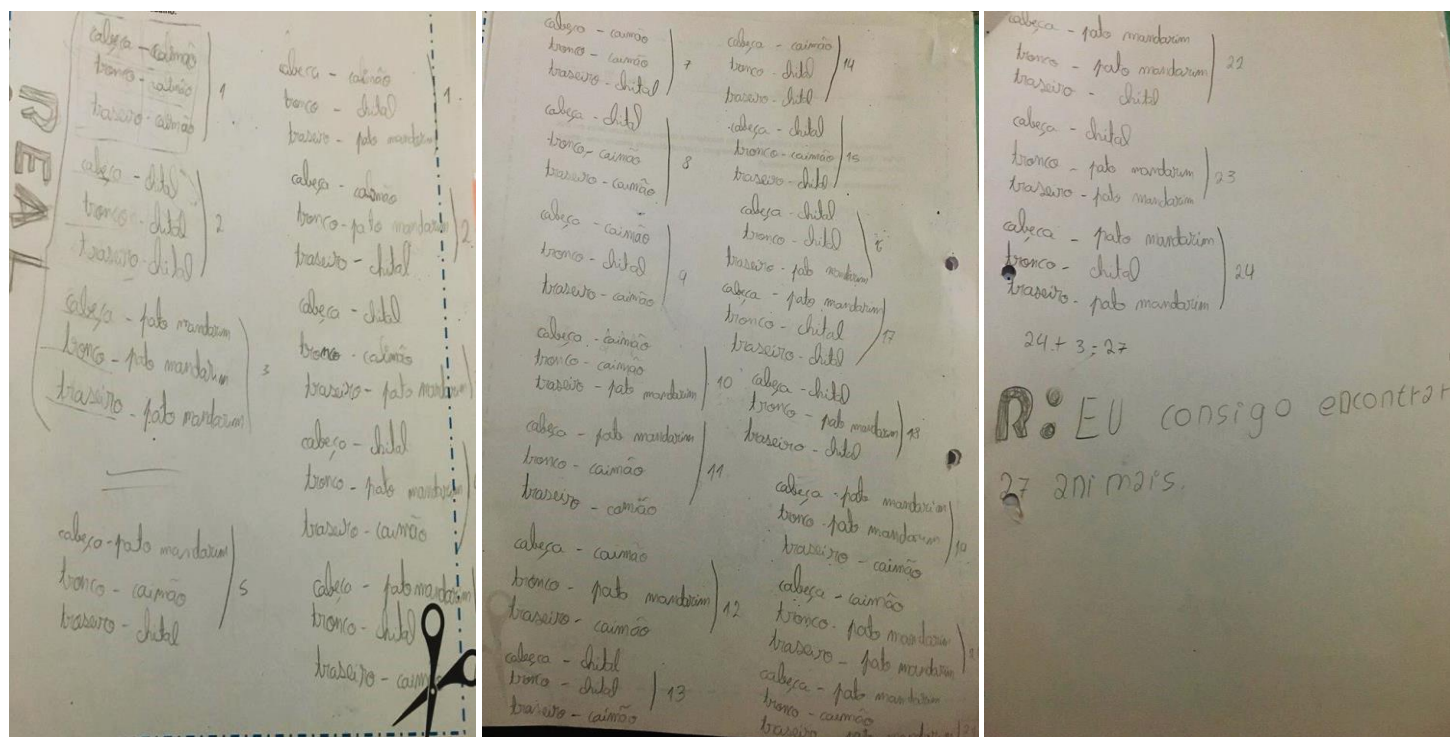 REAL
cabeça - caimão
tronco - caimão 1
traseiro - caimão
cabeça - chital
tronco - chital 2
traseiro - chital
cabeça - pato mandarim
tronco - pato mandarim 3
traseiro - pato mandarim
cabeça - pato mandarim
tronco - caimão 5
traseiro - chital
cabeça - caimão
tronco - chital 1
traseiro - pato mandarim
cabeça - caimão
tronco - pato mandarim 2
traseiro - chital
cabeça - chital
tronco - caimão
traseiro - pato mandarim
cabeça - chital
tronco - pato mandarim
traseiro - caimão
cabeça - pato mandarim
tronco - chital
traseiro - caim
cabeça - caimão
tronco - caimão 7
traseiro - chital
cabeça - chital
tronco - caimão 8
traseiro - caimão
cabeça - caimão
tronco - chital 9
traseiro - caimão
cabeça - caimão
tronco - caimão
traseiro - pato mandarim 10
cabeça - pato mandarim
tronco - caimão 11
traseiro - caimão
cabeça - caimão
tronco - pato mandarim 12
traseiro - caimão
cabeça - chital
tronco - chital 13
traseiro - caimão
cabeça - caimão
tronco - chital 14
traseiro - chital
cabeça - chital
tronco - caimão 15
traseiro - chital
cabeça - chital
tronco - chital
traseiro - pato mandarim
cabeça - pato mandarim
tronco - chital 17
traseiro - chital
cabeça - chital
tronco - pato mandarim 18
traseiro - chital
cabeça - pato mandarim
tronco - pato mandarim 19
traseiro - caimão
cabeça - caimão
tronco - pato mandarim
traseiro - pato mandarim
cabeça - pato mandarim
tronco - caimão
traseiro - pato mandarim
cabeça - pato mandarim
tronco - pato mandarim 22
traseiro - chital
cabeça - chital
tronco - pato mandarim 23
traseiro - pato mandarim
cabeça - pato mandarim
tronco - chital 24
traseiro - pato mandarim
24 + 3 = 27
R: EU consigo encontrar
27 animais.